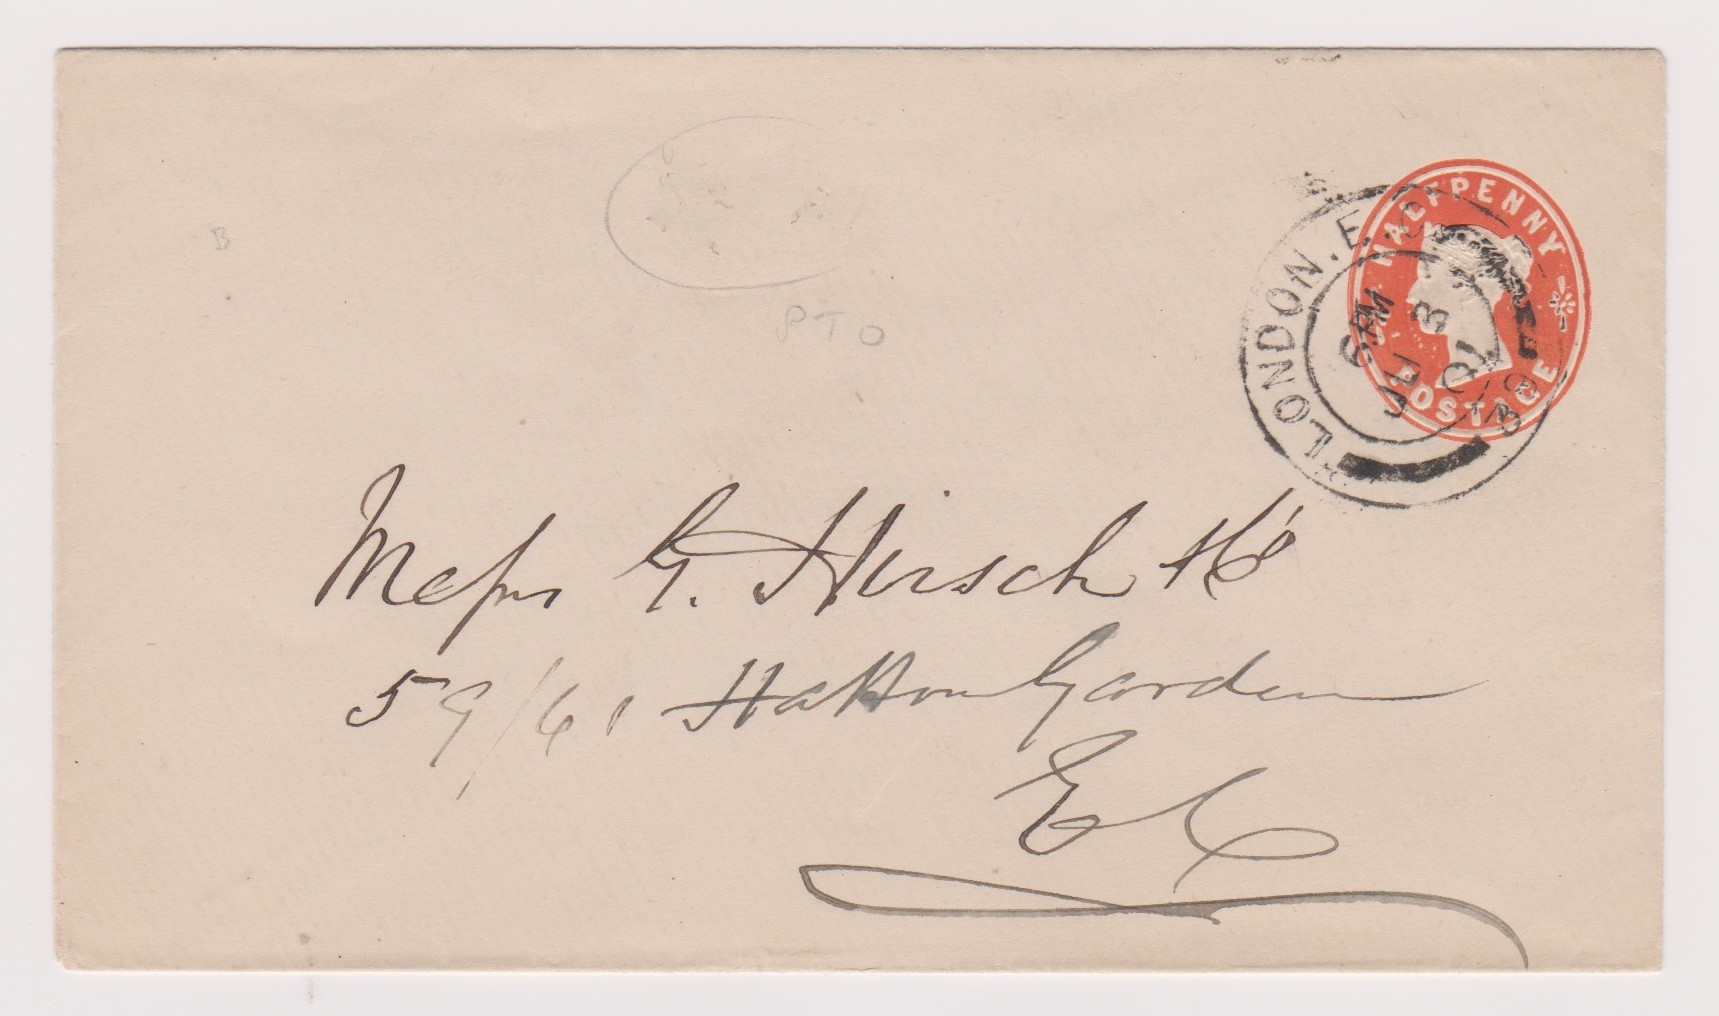 HALFPENNY
POSTAGE
LONDON. E.C.
6 PM
JU 3
01
B
PTO
Messrs G. Hirsch & Co
59/61 Hatton Garden
E C